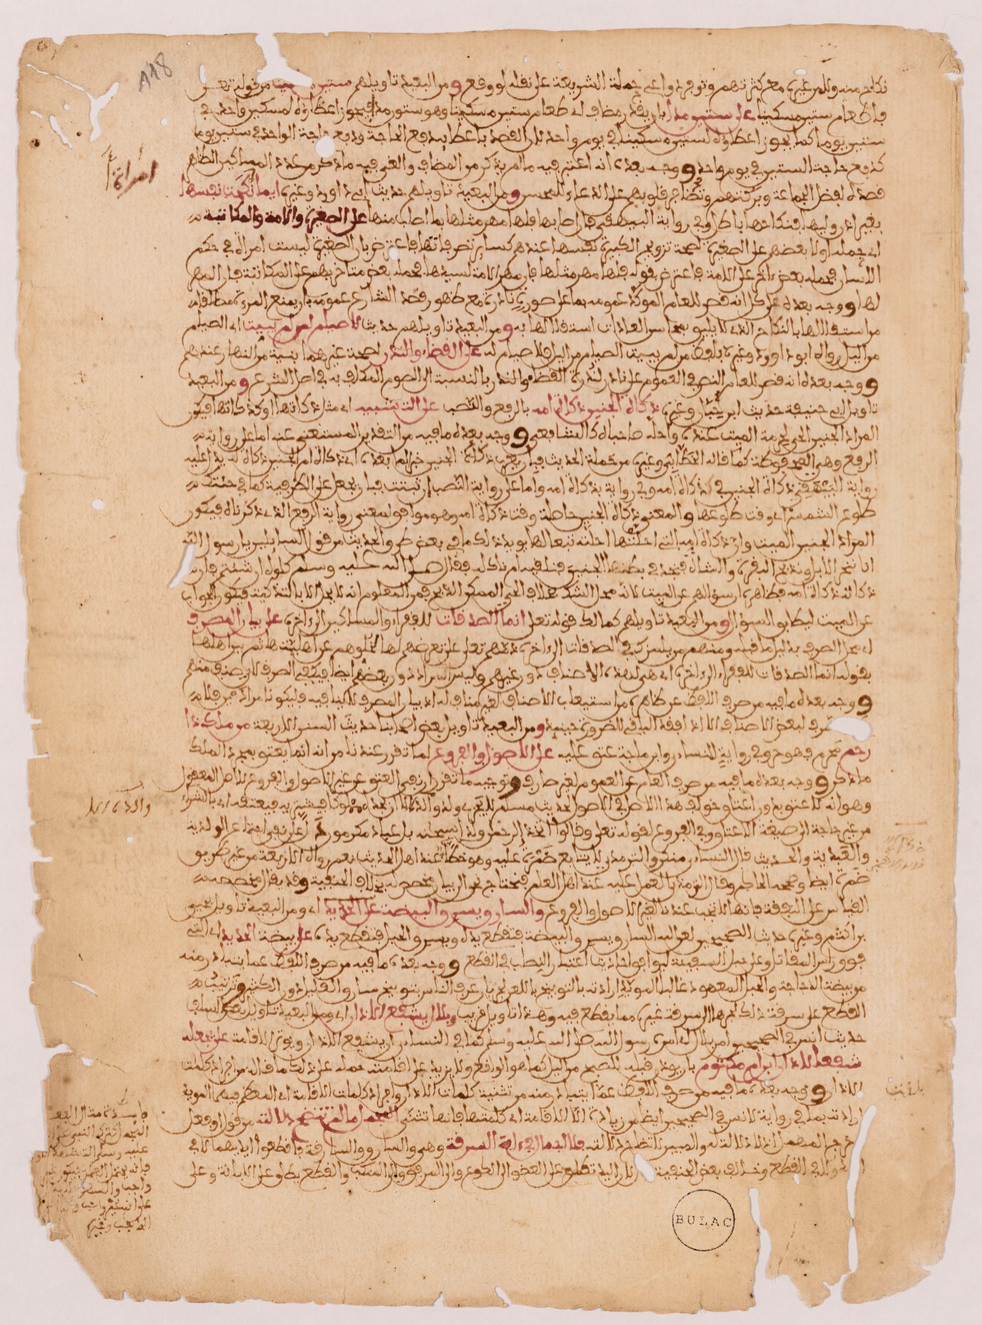 نكاح منه ولا من غيره مع كثرتهم وتوفر دواعي حملة الشريعة على نقله لو وقع ومن البعيد تاويلهم ستين مسكينا من قوله تعلى
فاطعام ستين مسكينا على ستين مدا بان يقدر مضاف اي طعام ستين مسكينا وهو ستون مدا فيجوز اعطاؤه لمسكين واحد في
ستين يوما كما يجوز اعطاؤه لستين مسكينا في يوم واحد لان القصد باعطائه دفع الحاجة ودفع حاجة الواحد في ستين يوما
كدفع حاجة الستين في يوم واحد ووجه بعده انه اعتبر فيه ما لم يذكر من المضاف والغى فيه ما ذكر من عدد المساكين الظاهر
قصده لفضل الجماعة وبركتهم وتظافر قلوبهم على الدعاء للمحسن ومن البعيد تاويلهم حديث ابي داوود وغيره ايما امراة نكحت نفسها
بغير اذن وليها فنكاحها باطل وفي رواية البيهقي فان اصابها فلها مهر مثلها بما اصاب منها على الصغيرة والامة والمكاتبة
اي حمله اولا بعضهم على الصغيرة لصحة تزويج الكبيرة نفسها عندهم كساير تصرفاتها فاعترض بان الصغيرة ليست امراة في حكم
اللسان فحمله بعض ءاخر على الامة فاعترض بقوله فلها مهر مثلها فان مهر الامة لسيدها فحمله بعض متاخريهم على المكاتبة فان المهر
لها ووجه بعده على كل انه قصر للعام المؤكد عمومه بما على صورة نادرة مع ظهور قصد الشارع عمومه بان يمنع المراة مطلقا
من استقلالها بالنكاح الذي لا يليق بمحاسن العادات استقلالها به ومن البعيد تاويلهم حديث لا صيام لمن لم يبيت اي الصيام
من اليل رواه ابو داوود وغيره بلفظ من لم يبيت الصيام من اليل فلا صيام له على القضاء والنذر لصحة غيرهما بنية من النهار عندهم
ووجه بعده انه قصر للعام النص في العموم على نادر لندرة القضاء والنذر بالنسبة الى الصوم المكلف به في اصل الشرع ومن البعيد
تاويل ابي حنيفة حديث ابن حبان وغيره ذكاة الجنين ذكاة امه بالرفع والنصب على التشبيه اي مثل ذكاتها او كذكاتها فيكون
المراد الجنين الحي لحرمة الميت عنده واحله صاحباه كالشافعي ووجه بعده ما فيه من التقدير المستغنى عنه اما على رواية
الرفع وهي المحفوظة كما قاله الخطابي وغيره من حملة الحديث فبان يعرب ذكاة الجنين خبرا لما بعده اي ذكاة ام الجنين ذكاة له يدل عليه
رواية البيهقي ذكاة الجنين في ذكاة امه وفي رواية بذكاة امه واما على رواية النصب ان ثبتت فبان يجعل على الظرفية كما في جئتك
طلوع الشمس اي وقت طلوعها والمعنى ذكاة الجنين حاصلة وقت ذكاة امه وهو موافق لمعنى رواية الرفع الذي ذكرناه فيكون
المراد الجنين الميت وان ذكاة امه التي احلتها احلته تبعا لها يؤيد ذلك ما في بعض طرق الحديث من قول السايلين يا رسول الله
انا ننحر الابل ونذبح البقر والشاة فنجد في بطنها الجنين افنلقيه ام ناكله فقال صلى الله عليه وسلم كلوه ان شئتم فان
ذكاته ذكاة امه فظاهر ان سؤالهم عن الميت لانه محل الشك بخلاف الحي الممكن الذبح فمن المعلوم انه لا يحل الا بالتذكية فيكون الجواب
عن الميت ليطابق السؤال ومن البعيد تاويلهم كمالك قوله تعلى انما الصدقات للفقراء والمساكين الى ءاخره على بيان المصرف
اي محل الصرف بدليل ما قبله ومنهم من يلمزك في الصدقات الى ءاخره ذمهم تعلى على تعرضهم لها لخلوهم عن اهليتها ثم بين اهلها
بقوله انما الصدقات للفقراء الى ءاخره اي هي لهذه الاصناف دون غيرهم وليس المراد دون بعضهم ايضا فيكفي الصرف لاي صنف منهم
ووجه بعده ما فيه من صرف اللفظ عن ظاهره من استيعاب الاصناف لغير مناف له اذ بيان المصرف لا ينافيه فليكونا مرادين فلا
يكفي الصرف لبعض الاصناف الا اذا فقد الباقي للضرورة حينئذ ومن البعيد تاويل بعض اصحابنا حديث السنن الاربعة من ملك ذا
رحم محرم فهو حر وفي رواية للنساءي وابن ماجة عتق عليه على الاصول والفروع لما تقرر عندنا من انه انما يعتق بمجرد الملك
ما ذكر ووجه بعده ما فيه من صرف العام عن العموم لغير صارف وتوجيه ما تقرر ان نفي العتق عن غير الاصول والفروع للاصل المعقول
وهو انه لا عتق بدون اعتاق خولف هذا الاصل في الاصول لحديث مسلم لا يجزي ولد والده الا ان يجده مملوكا فيشتريه فيعتقه اي بالشراء
من غير حاجة الى صيغة الاعتاق وفي الفروع لقوله تعلى وقالوا اتخذ الرحمن ولدا سبحانه بل عباد مكرمون دل على نفي اجتماع الولدية
والعبدية والحديث قال النساءي منكر والترمذي لا يتابع ضمرة عليه وهو خطا عند اهل الحديث نعم رواه الاربعة من غير طريق
ضمرة ايضا وصححه الحاكم وقال الترمذي العمل عليه عند اهل العلم فنحتاج نحن الى بيان مخصص له بخلاف الحنفية وقد يقال مخصصه
القياس على النفقة فانها لا تجب عندنا لغير الاصول والفروع والسارق يسرق البيضة على الحديد اي ومن البعيد تاويل يحيى
بن اكثم وغيره حديث الصحيحين لعن الله السارق يسرق البيضة فتقطع يده ويسرق الحبل فتقطع يده على بيضة الحديد اي التي
فوق راس المقاتل وعلى حبل السفينة ليوافق احاديث اعتبار النصاب في القطع ووجه بعده ما فيه من صرف اللفظ عما يتبادر منه
من بيضة الدجاجة والحبل المعهود غالبا المؤيد ارادته بالتوبيخ باللعن لجريان عرف الناس بتوبيخ سارق القليل دون الكثير وترتيب
القطع على سرقة ذلك لجرها الى سرقة غيره مما يقطع فيه وهذا تاويل قريب وبلال يشفع الاذان اي ومن البعيد تاويل بعض السلف
حديث انس في الصحيحين امر بلال اي امره رسول الله صلى الله عليه وسلم كما في النساءي ان يشفع الاذان ويوتر الاقامة على ان يجعله
شفعا لاذان ابن ام مكتوم بان يؤذن قبله للصبح من اليل كما هو الواقع ولا يزيد على اقامته حمله على ذلك ما قاله من افراد كلمات
الاذان ووجه بعده ما فيه من صرف اللفظ عما يتبادر منه من تثنية كلمات الاذان وافراد كلمات الاقامة اي المعظم فيهما المؤيد
ارادته بما في رواية لانس في الصحيحين ايضا من زيادة الا الاقامة اي كلمتها فانها تثنى المجمل ما لم تتضح دلالته من قول او فعل
وخرج المهمل اذ لا دلالة له والمبين لاتضاح دلالته فلا اجمال في ءاية السرقة وهي والسارق والسارقة فاقطعوا ايديهما لا في
اليد ولا في القطع وخالف بعض الحنفية قال لان اليد تطلق على العضو الى الكوع والى المرفق والى المنكب والقطع يطلق على الابانة وعلى
امراة
BULAC